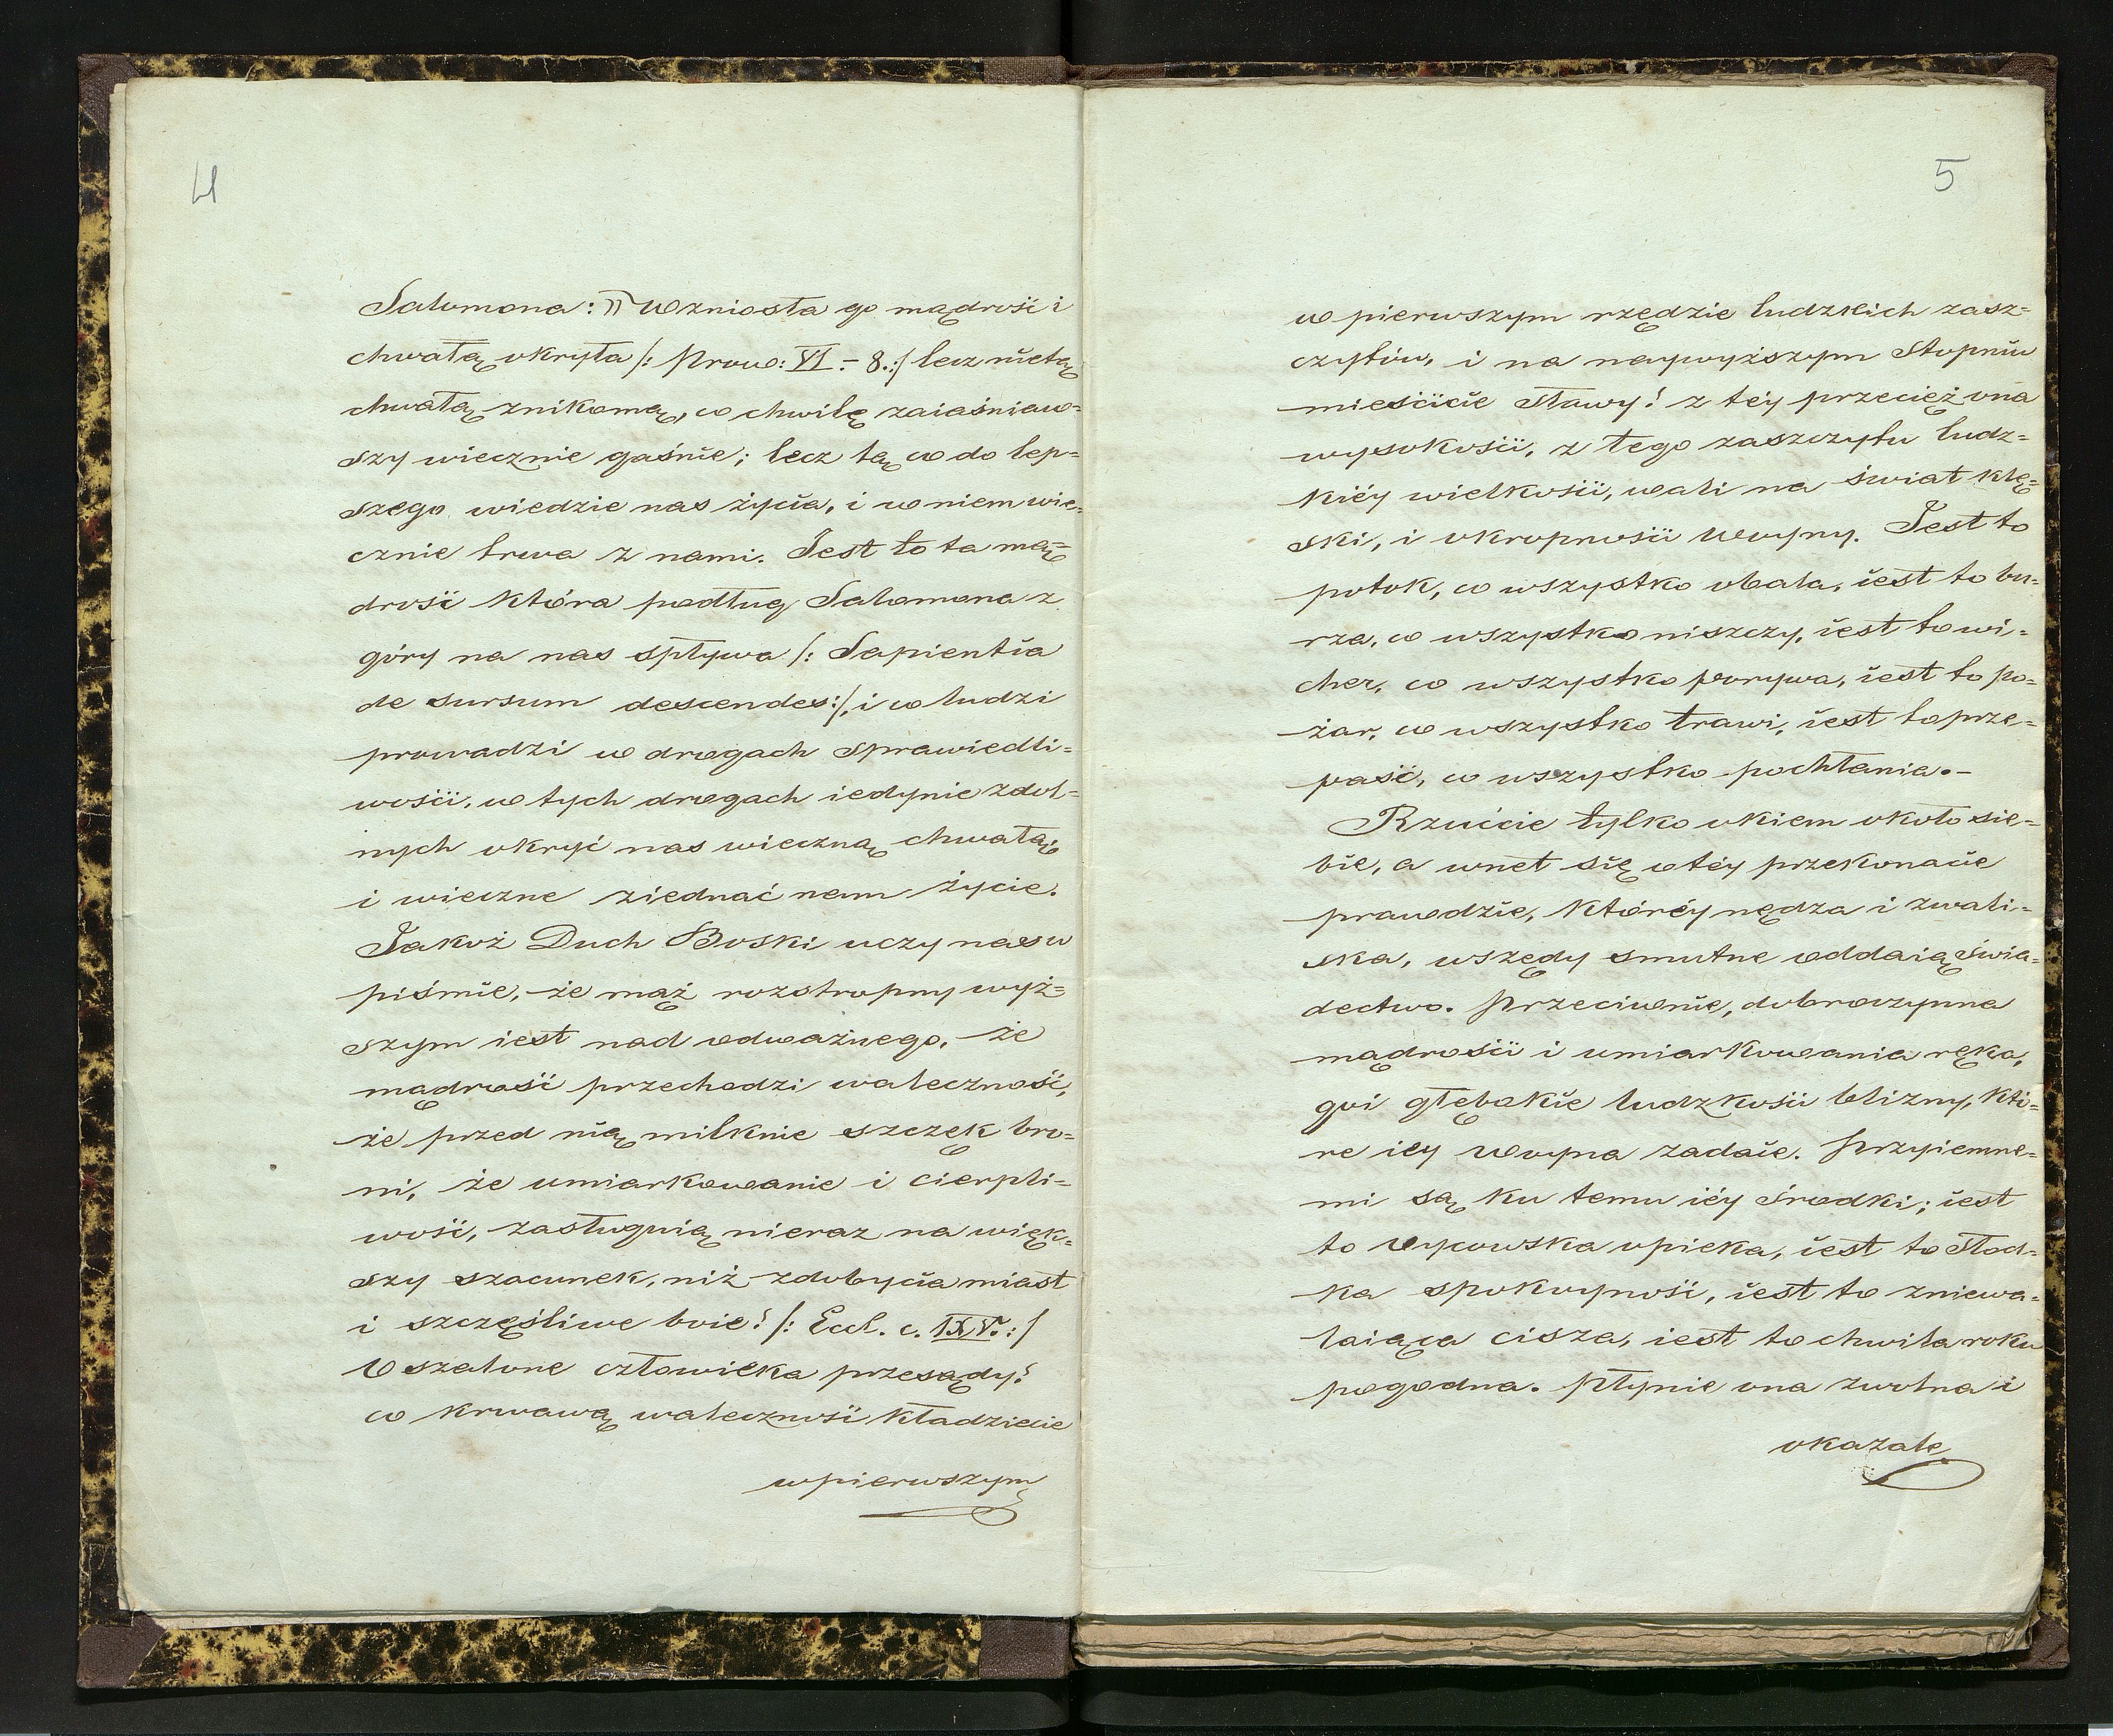 4
Salomona: „Wzniosła go mądrość i
chwałą okryła /: Prow: VI. – 8. :/ lecz nie tą
chwałą znikomą, co chwilę zaiaśniaw=
szy wiecznie gaśnie; lecz tą co do lep=
szego wiedzie nas życia, i w niem wie=
cznie trwa z nami. Jest to ta mą=
drość która podług Salomona z
góry na nas spływa /: Sapientia
de sursum descendes :/, i co ludzi
prowadzi w drogach sprawiedli=
wości, w tych drogach iedynie zdol=
nych okryć nas wieczną chwałą,
i wieczne ziednać nam życie.
Jakoż Duch Boski uczy nas w
piśmie, że mąż roztropny wyż=
szym iest nad odważnego, że
mądrość przechodzi waleczność,
że przed nią milknie szczęk bro=
ni, że umiarkowanie i cierpli=
wość, zasługuią nieraz na więk=
szy szacunek, niż zdobycia miast
i szczęśliwe boie! /: Eccl. c. IXV. :/
O szalone człowieka przesądy!
co krwawą waleczność kładziecie
w pierwszym
5
w pierwszym rzędzie ludzkich zasz=
czytów, i na naywyższym stopniu
mieścicie sławy! z téy przecież ona
wysokości, z tego zaszczytu ludz=
kiéy wielkości, wali na świat klę=
ski, i okropności Woyny. Jest to
potok, co wszystko obala, iest to bu=
rza, co wszystko niszczy, iest to wi=
cher, co wszystko porywa, iest to po=
żar, co wszystko trawi, iest to prze=
paść, co wszystko pochłania.–
Rzućcie tylko okiem około sie=
bie, a wnet się o téy przekonacie
prawdzie, któréy nędza i zwali=
ska, wszędy smutne oddaią świa=
dectwo. Przeciwnie, dobroczynna
mądrości i umiarkowania ręka,
goi głębokie ludzkości blizny, któ=
re iéy Woyna zadaie. Przyiemne=
mi są ku temu iéy środki; iest
to Oycowska opieka, iest to słod=
ka spokoyność, iest to zniewa=
laiąca cisza, iest to chwila roku
pogodna. Płynie ona zwolna i
okazale